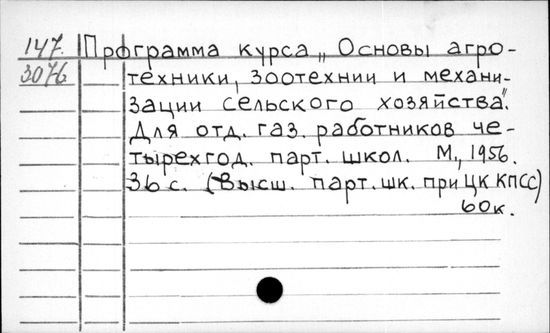 147. Программа курса „Основы агро-
3076 техники, зоотехнии и механи-
зации сельского хозяйства".
Для отд. газ. работников че-
тырехгод. парт. школ. М., 1956.
36 с. (Высш. парт. шк. при ЦК КПСС)
60 к.